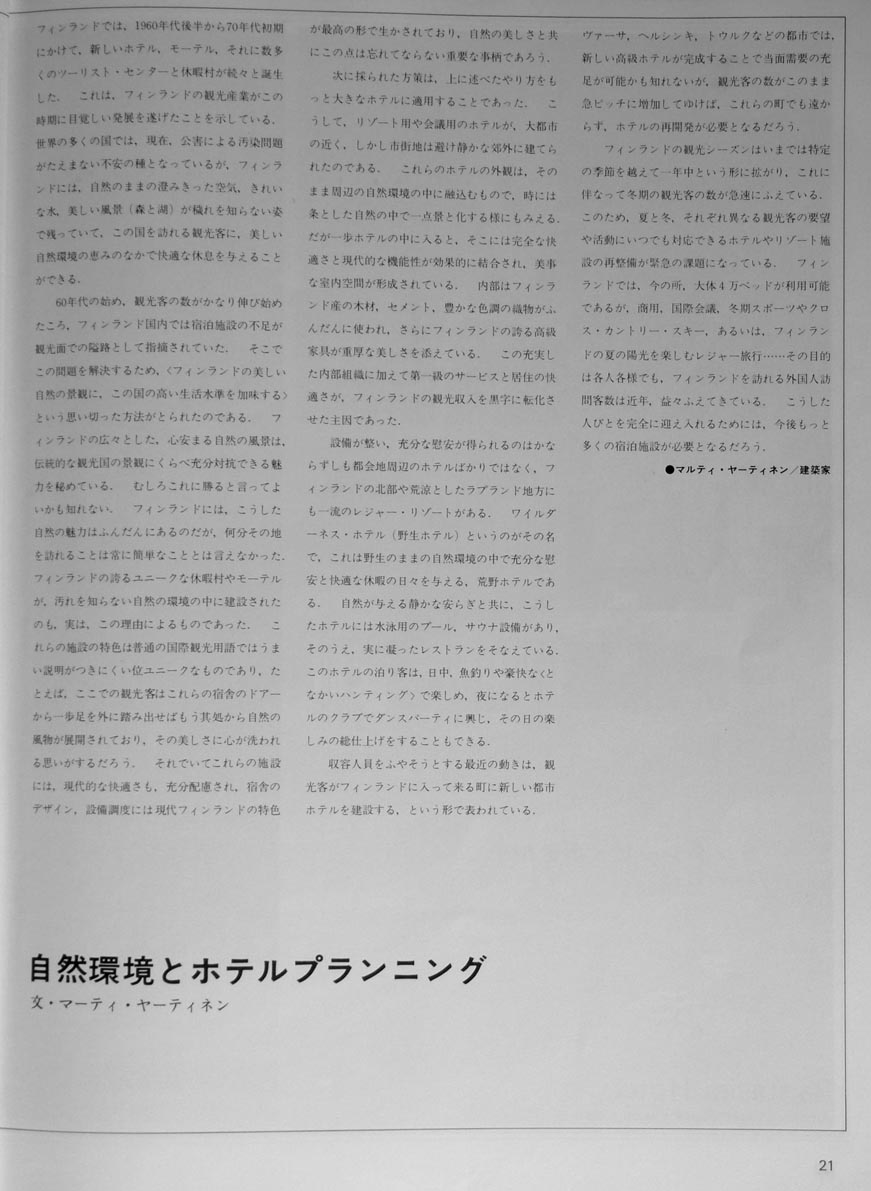 フィンランドでは，1960年代後半から70年代初期
にかけて，新しいホテル，モーテル，それに数多
くのツーリスト・センターと休暇村が続々と誕生
した．　これは，フィンランドの観光産業がこの
時期に目覚しい発展を遂げたことを示している．
世界の多くの国では，現在，公害による汚染問題
がたえまない不安の種となっているが，フィンラ
ンドには，自然のままの澄みきった空気，きれい
な水，美しい風景（森と湖）が穢れを知らない姿
で残っていて，この国を訪れる観光客に，美しい
自然環境の恵みのなかで快適な休息を与えること
ができる．
　60年代の始め，観光客の数がかなり伸び始め
たころ，フィンランド国内では宿泊施設の不足が
観光面での隘路として指摘されていた．　そこで
この問題を解決するため，〈フィンランドの美しい
自然の景観に，この国の高い生活水準を加味する〉
という思い切った方法がとられたのである．　フ
ィンランドの広々とした，心安まる自然の風景は，
伝統的な観光国の景観にくらべ充分対抗できる魅
力を秘めている．　むしろこれに勝ると言ってよ
いかも知れない．　フィンランドには，こうした
自然の魅力はふんだんにあるのだが，何分その地
を訪れることは常に簡単なこととは言えなかった．
フィンランドの誇るユニークな休暇村やモーテル
が，汚れを知らない自然の環境の中に建設された
のも，実は，この理由によるものであった．　こ
れらの施設の特色は普通の国際観光用語ではうま
い説明がつきにくい位ユニークなものであり，た
とえば，ここでの観光客はこれらの宿舎のドアー
から一歩足を外に踏み出せばもう其処から自然の
風物が展開されており，その美しさに心が洗われ
る思いがするだろう．　それでいてこれらの施設
には，現代的な快適さも，充分配慮され，宿舎の
デザイン，設備調度には現代フィンランドの特色
が最高の形で生かされており，自然の美しさと共
にこの点は忘れてならない重要な事柄であろう．
　次に採られた方策は，上に述べたやり方をも
っと大きなホテルに適用することであった．　こ
うして，リゾート用や会議用のホテルが，大都市
の近く，しかし市街地は避け静かな郊外に建てら
れたのである．　これらのホテルの外観は，その
まま周辺の自然環境の中に融込むもので，時には
条とした自然の中で一点景と化する様にもみえる．
だが一歩ホテルの中に入ると，そこには完全な快
適さと現代的な機能性が効果的に結合され，美事
な室内空間が形成されている．　内部はフィンラ
ンド産の木材，セメント，豊かな色調の織物がふ
んだんに使われ，さらにフィンランドの誇る高級
家具が重厚な美しさを添えている．　この充実し
た内部組織に加えて第一級のサービスと居住の快
適さが，フィンランドの観光収入を黒字に転化さ
せた主因であった．
　設備が整い，充分な慰安が得られるのはかな
らずしも都会地周辺のホテルばかりではなく，フ
ィンランドの北部や荒涼としたラプランド地方に
も一流のレジャー・リゾートがある．　ワイルダ
ーネス・ホテル（野生ホテル）というのがその名
で，これは野生のままの自然環境の中で充分な慰
安と快適な休暇の日々を与える，荒野ホテルであ
る．　自然が与える静かな安らぎと共に，こうし
たホテルには水泳用のプール，サウナ設備があり，
そのうえ，実に凝ったレストランをそなえている．
このホテルの泊り客は，日中，魚釣りや豪快な〈と
なかいハンティング〉で楽しめ，夜になるとホテ
ルのクラブでダンスパーティに興じ，その日の楽
しみの総仕上げをすることもできる．
　収容人員をふやそうとする最近の動きは，観
光客がフィンランドに入って来る町に新しい都市
ホテルを建設する，という形で表われている．
ヴァーサ，ヘルシンキ，トウルクなどの都市では，
新しい高級ホテルが完成することで当面需要の充
足が可能かも知れないが，観光客の数がこのまま
急ピッチに増加してゆけば，これらの町でも遠か
らず，ホテルの再開発が必要となるだろう．
　フィンランドの観光シーズンはいまでは特定
の季節を越えて一年中という形に拡がり，これに
伴なって冬期の観光客の数が急速にふえている．
このため，夏と冬，それぞれ異なる観光客の要望
や活動にいつでも対応できるホテルやリゾート施
設の再整備が緊急の課題になっている．　フィン
ランドでは，今の所，大体４万ベッドが利用可能
であるが，商用，国際会議，冬期スポーツやクロ
ス・カントリー・スキー，あるいは，フィンラン
ドの夏の陽光を楽しむレジャー旅行……その目的
は各人各様でも，フィンランドを訪れる外国人訪
問客数は近年，益々ふえてきている．　こうした
人びとを完全に迎え入れるためには，今後もっと
多くの宿泊施設が必要となるだろう．
●マルティ・ヤーティネン／建築家
自然環境とホテルプランニング
文・マーティ・ヤーティネン
21